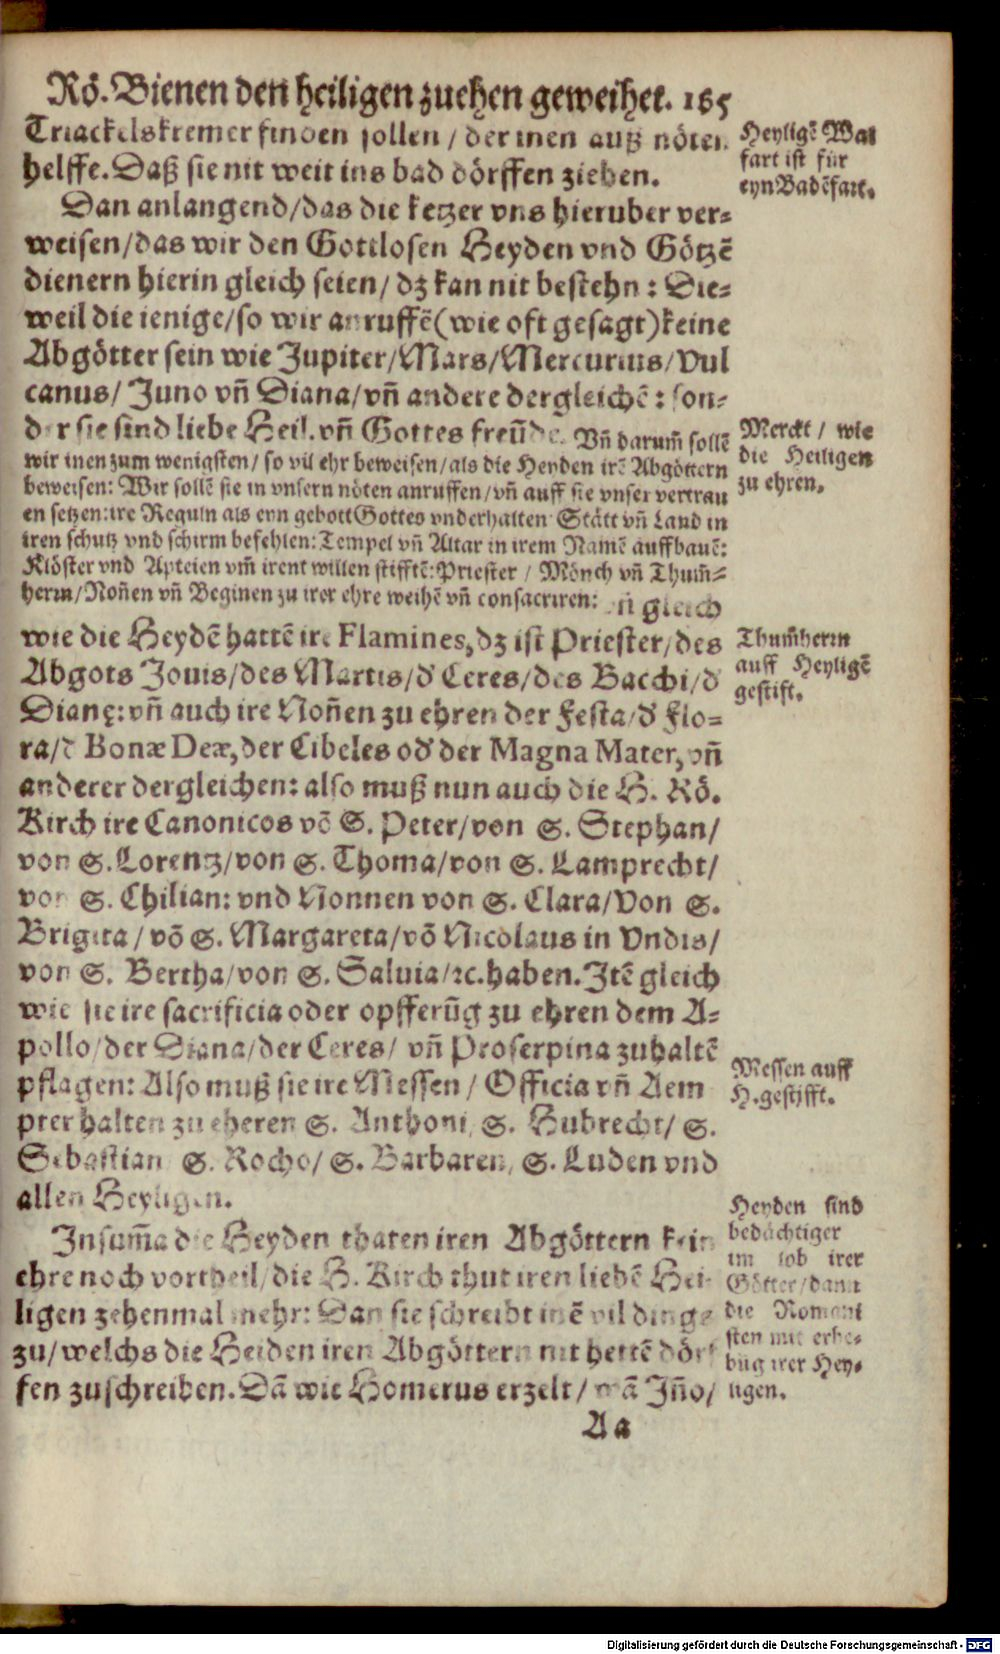 Rö. Bienen den heiligen zuehen geweihet. 185
Triackelskremer finden sollen / der inen auß nöten
helffe. Daß sie nit weit ins bad dörffen ziehen.
Heyligē Wal
fart ist für
eyn Badēfart.
Dan anlangend / das die ketzer vns hieruber ver-
weisen / das wir den Gottlosen Heyden vnd Götzē
dienern hierin gleich seien / dz kan nit bestehn : Die-
weil die ienige / so wir anruffē (wie oft gesagt) keine
Abgötter sein wie Jupiter / Mars / Mercurius / Vul
canus / Juno vñ Diana / vñ andere dergleichē : son-
der sie sind liebe Heil. vñ Gottes freūde. Vñ darum̃ sollē
wir inen zum wenigsten / so vil ehr beweisen / als die Heyden irē Abgöttern
beweisen: Wir sollē sie in vnsern nöten anruffen / vñ auff sie vnser vertrau
en setzen: ire Reguln als eyn gebott Gottes vnderhalten Stätt vñ Land in
iren schutz vnd schirm befehlen: Tempel vñ Altar in irem Namē auffbauē:
Klöster vnd Apteien vm̃ irent willen stifftē: Priester / Mönch vñ Thum̃-
herrn / Noñen vñ Beginen zu irer ehre weihē vñ consacriren: vñ gleich
Merckt / wie
die Heiligen
zu ehren.
wie die Heydē hattē ire Flamines, dz ist Priester / des
Abgots Jouis / des Martis / d' Ceres / des Bacchi / d'
Dianę: vñ auch ire Noñen zu ehren der Festa / d' Flo-
ra / d' Bonæ Deæ, der Cibeles od' der Magna Mater, vñ
anderer dergleichen: also muß nun auch die H. Rö.
Kirch ire Canonicos vō S. Peter / von S. Stephan /
von S. Lorentz / von S. Thoma / von S. Lamprecht /
von S. Chilian: vnd Nonnen von S. Clara / Von S.
Brigita / vō S. Margareta / vō Nicolaus in Vndis /
von S. Bertha / von S. Saluia / ꝛc. haben. Itē gleich
wie sie ire sacrificia oder opfferūg zu ehren dem A-
pollo / der Diana / der Ceres / vñ Proserpina zuhaltē
pflagen: Also muß sie ire Messen / Officia vñ Aem
pter halten zu eheren S. Anthoni, S. Hubrecht / S.
Sebastian / S. Rocho / S. Barbaren, S. Luden vnd
allen Heyligen.
Thum̃herrn
auff Heyligē
gestift.
Messen auff
H. gestifft.
Insum̃a die Heyden thaten iren Abgöttern kein
ehre noch vortheil / die H. Kirch thut iren liebē Hei-
ligen zehenmal mehr: Dan sie schreibt inē vil dings
zu / welchs die Heiden iren Abgöttern nit hettē dörf
fen zuschreiben. Dā wie Homerus erzelt / wā Jñno /
Heyden sind
bedächtiger
im lob irer
Götter / dann
die Romani
sten mit erhe-
būg irer Hey-
ligen.
Aa
Digitalisierung gefördert durch die Deutsche Forschungsgemeinschaft - DFG